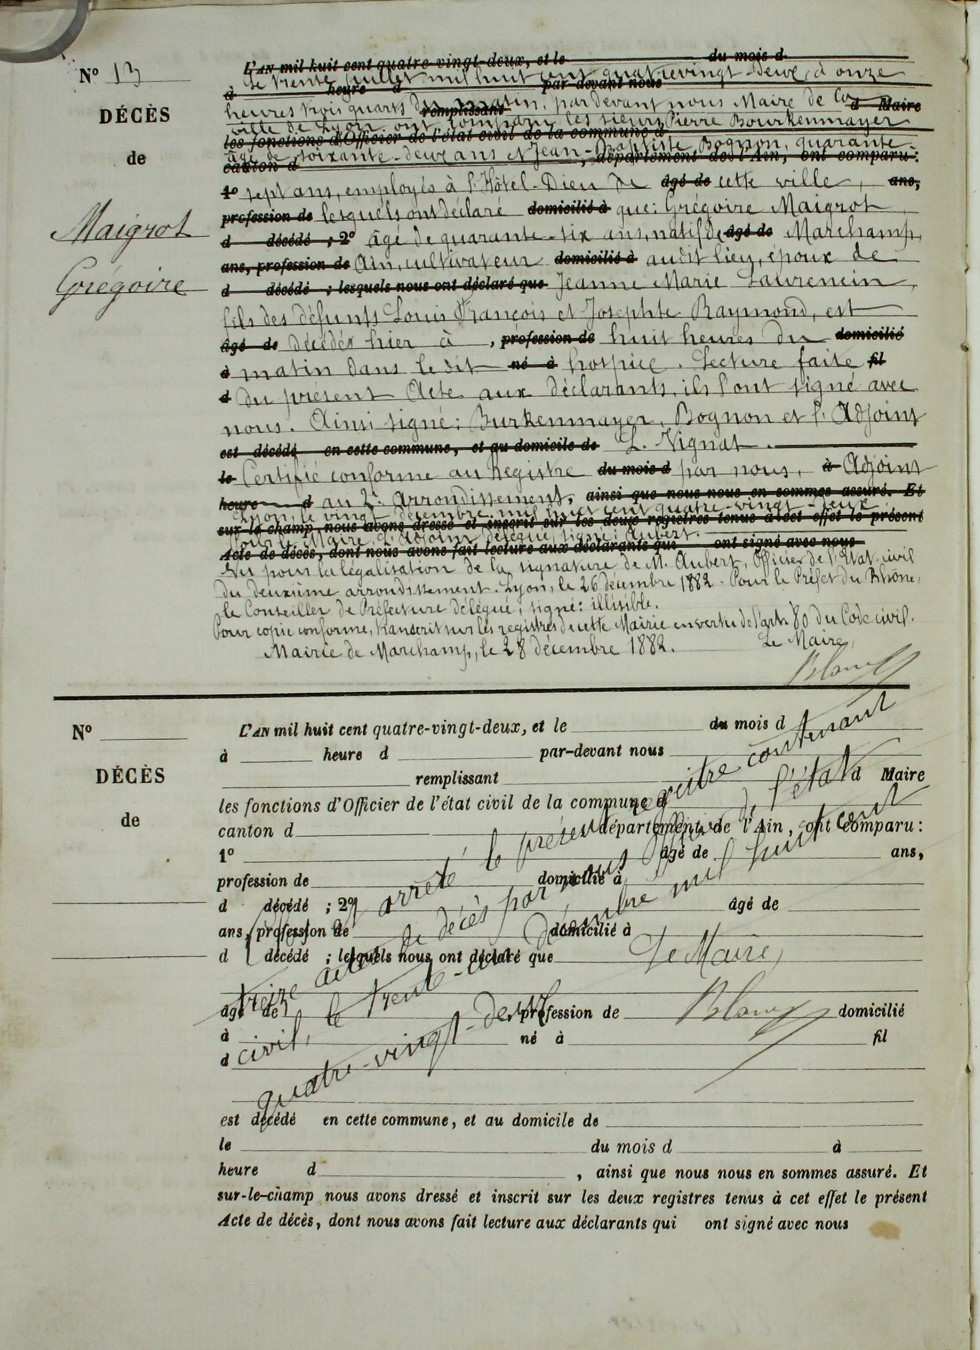 N° 13
DÉCÈS
de
Maigrot
Grégoire
L'AN mil huit cent quatre-vingt-deux, et le du mois d
Le trente Juillet mil huit cent quatre vingt-deux, à onze
à heure d par-devant nous
heures trois quarts du matin, pardevant nous Maire de la
remplissant d Maire
ville de Lyon ont comparu les sieurs Pierre Bourkenmayer
les fonctions d'Officier de l'état civil de la commune d
âgé de soixante-deux ans et Jean-Baptiste Bognon, quarante
canton d , département de l'Ain, ont comparu :
1° sept ans, employés à l'Hôtel-Dieu de âgé de cette ville, ans,
profession de lesquels ont déclaré domicilié à que: Grégoire Maigrot
d décédé ; 2° âgé de quarante-six ans, natif de âgé de Marchamp,
ans, profession de Ain, cultivateur domicilié à audit lieu, époux de
d décédé ; lesquels nous ont déclaré que Jeanne Marie Laurencin,
fils des défunts Louis François et Josephte Raymond, est
âgé de décédé hier à , profession de huit heures du domicilié
à matin dans le dit né à hospice. Lecture faite fil
d du présent Acte aux déclarants, ils l'ont signé avec
nous. Ainsi signé: Burkenmayer, Bognon et l'Adjoint
est décédé en cette commune, et au domicile de L. Vignat.
le Certifié conforme au Registre du mois d par nous, à Adjoint
heure d au 2e arrondissement. ainsi que nous nous en sommes assuré. Et
Lyon, le vingt décembre mil huit cent quatre-vingt-deux
sur-le-champ nous avons dressé et inscrit sur les deux registres tenus à cet effet le présent
Pour le Maire, l'Adjoint délégué, signé: Aubert.
Acte de décès, dont nous avons fait lecture aux déclarants qui ont signé avec nous
Vu pour la légalisation de la signature de M. Aubert, Officier de l'Etat-civil
du deuxième arrondissement. Lyon, le 26 décembre 1882. Pour le Préfet du Rhône,
le Conseiller de Préfecture délégué; signé: illisible.
Pour copie conforme, transcrit sur les registres de cette Mairie en vertu de l'art. 80 du Code civil.
Mairie de Marchamp, le 28 décembre 1882. Le Maire,
Blanc
N°
DÉCÈS
de
L'AN mil huit cent quatre-vingt-deux, et le du mois d
à heure d par-devant nous
remplissant d Maire
les fonctions d'Officier de l'état civil de la commune d
canton d département de l'Ain, ont comparu :
1° âgé de ans,
profession de domicilié à
d décédé ; 2° âgé de
ans, profession de domicilié à
d décédé ; lesquels nous ont déclaré que
âgé de , profession de domicilié
à né à fil
d
est décédé en cette commune, et au domicile de
le du mois d à
heure d , ainsi que nous nous en sommes assuré. Et
sur-le-champ nous avons dressé et inscrit sur les deux registres tenus à cet effet le présent
Acte de décès, dont nous avons fait lecture aux déclarants qui ont signé avec nous
arrêté le présent registre contenant
treize actes de décès par nous officier de l'état
civil, le trente-un décembre mil huit cent
quatre-vingt-deux
Le Maire,
Blanc